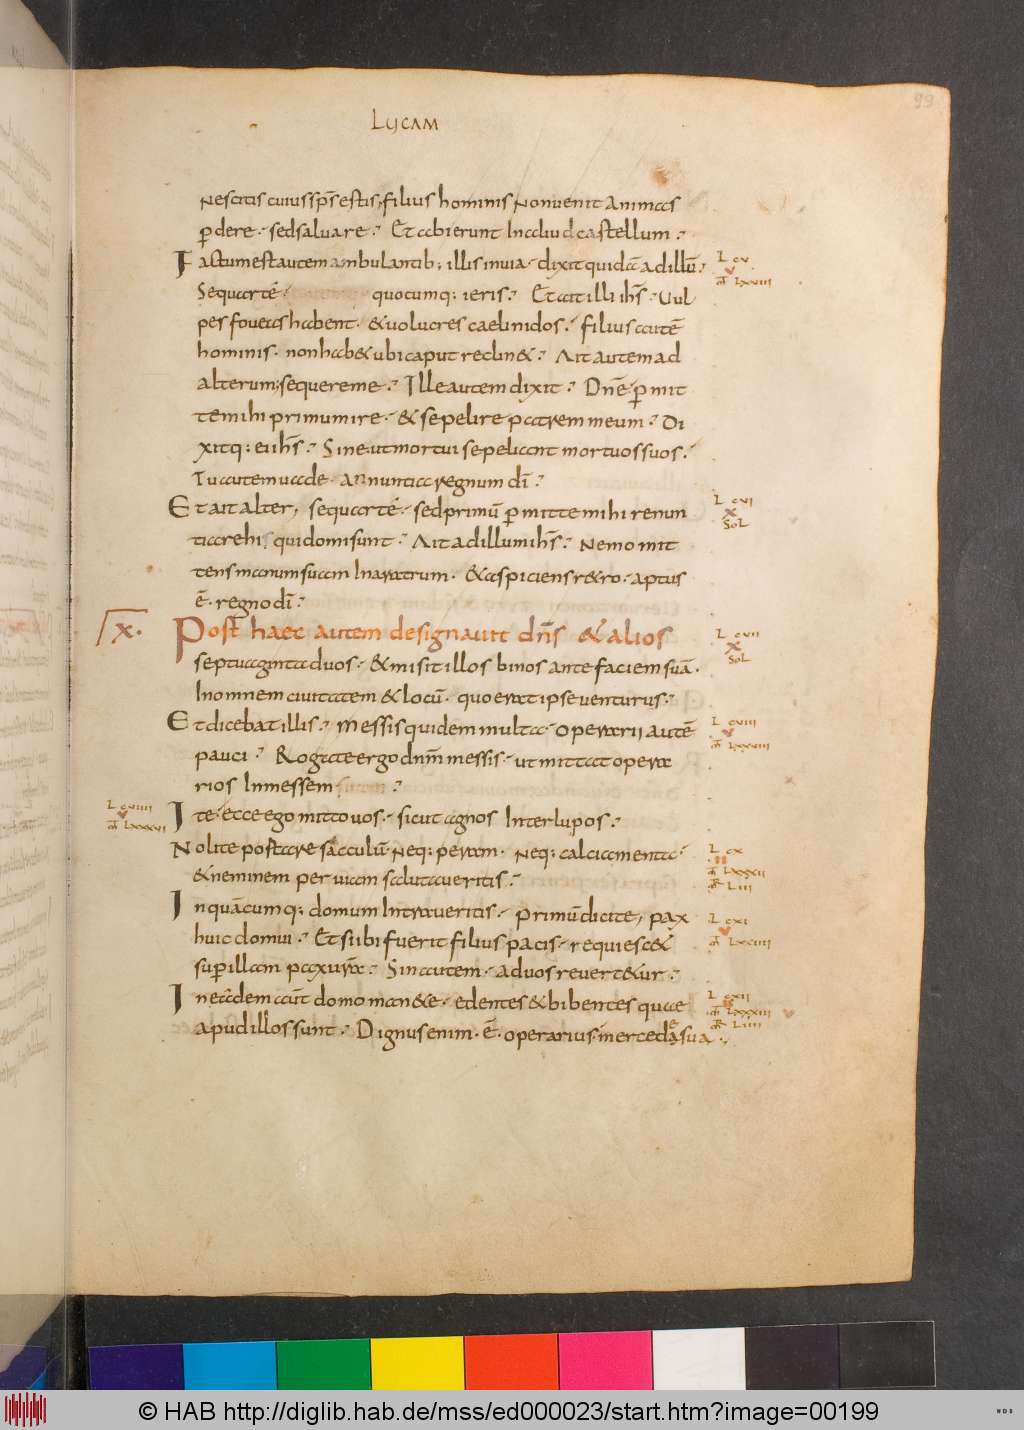 99
LUCAM
Nescitis cuius sp̄s estis, filius hominis non uenit animas
ꝑdere. sed saluare. Et abierunt in aliud castellum.
Factum est autem ambulantib; illis in uia. dixit quidā ad illū.
Sequar té. quocumq; ieris. Et ait illi ih̄s. Uul
pes foueas habent. & uolucres caeli nidos. filius autē
hominis. non hab& ubi caput reclin&. Ait autem ad
alterum; sequere me. Ille autem dixit. Dn̄e ꝑmit
te mihi primum ire. & sepelire patrem meum. Di
xitq; ei ih̄s. Sine ut mortui sepeliant mortuos suos.
Tu autem uade. annuntia regnum dī.
Et ait alter, sequar té. sed primū ꝑmitte mihi renun
tiare hi qui domi sunt. Ait ad illum ih̄s. Nemo mit
tens manum suam in aratrum. & aspiciens r&ro. aptus
ē. regno dī.
X. Post haec autem designauit dn̄s & alios
septuaginta duos. & misit illos binos ante faciem suā.
In omnem ciuitatem & locū. quo erat ipse uenturus.
Et dicebat illis. Messis quidem multa. operarii autē
pauci. Rogate ergo dn̄m messis. ut mittat opera
rios in messem
Ite. ecce ego mitto uos. sicut agnos inter lupos.
Nolite postare sacculū. neq; peram. neq; calciamenta.
& neminem per uiam salutaueritis.
In quācumq; domum intraueritis. primū dicite, pax
huic domui. Et si ibi fuerit filius pacis. requiesc&
suꝑ illam pax urā. Sin autem. ad uos reuert&ur.
In eadem aūt domo man&e. edentes & bibentes quae
apud illos sunt. Dignus enim. ē. operarius mercede sua.
L cv
m̄ lxviiii
L cvi
x
Sol
L cvii
x
Sol
L cviii
v
m̄ lxxviiii
L cviiii
v
m̄ lxxxvi
L cx
ii
m̄ lxxxii
m̄r liii
L cxi
v
m̄ lxxxiiii
L cxii
m̄ lxxxiii
m̄r liiii
© HAB http://diglib.hab.de/mss/ed000023/start.htm?image=00199
WDB